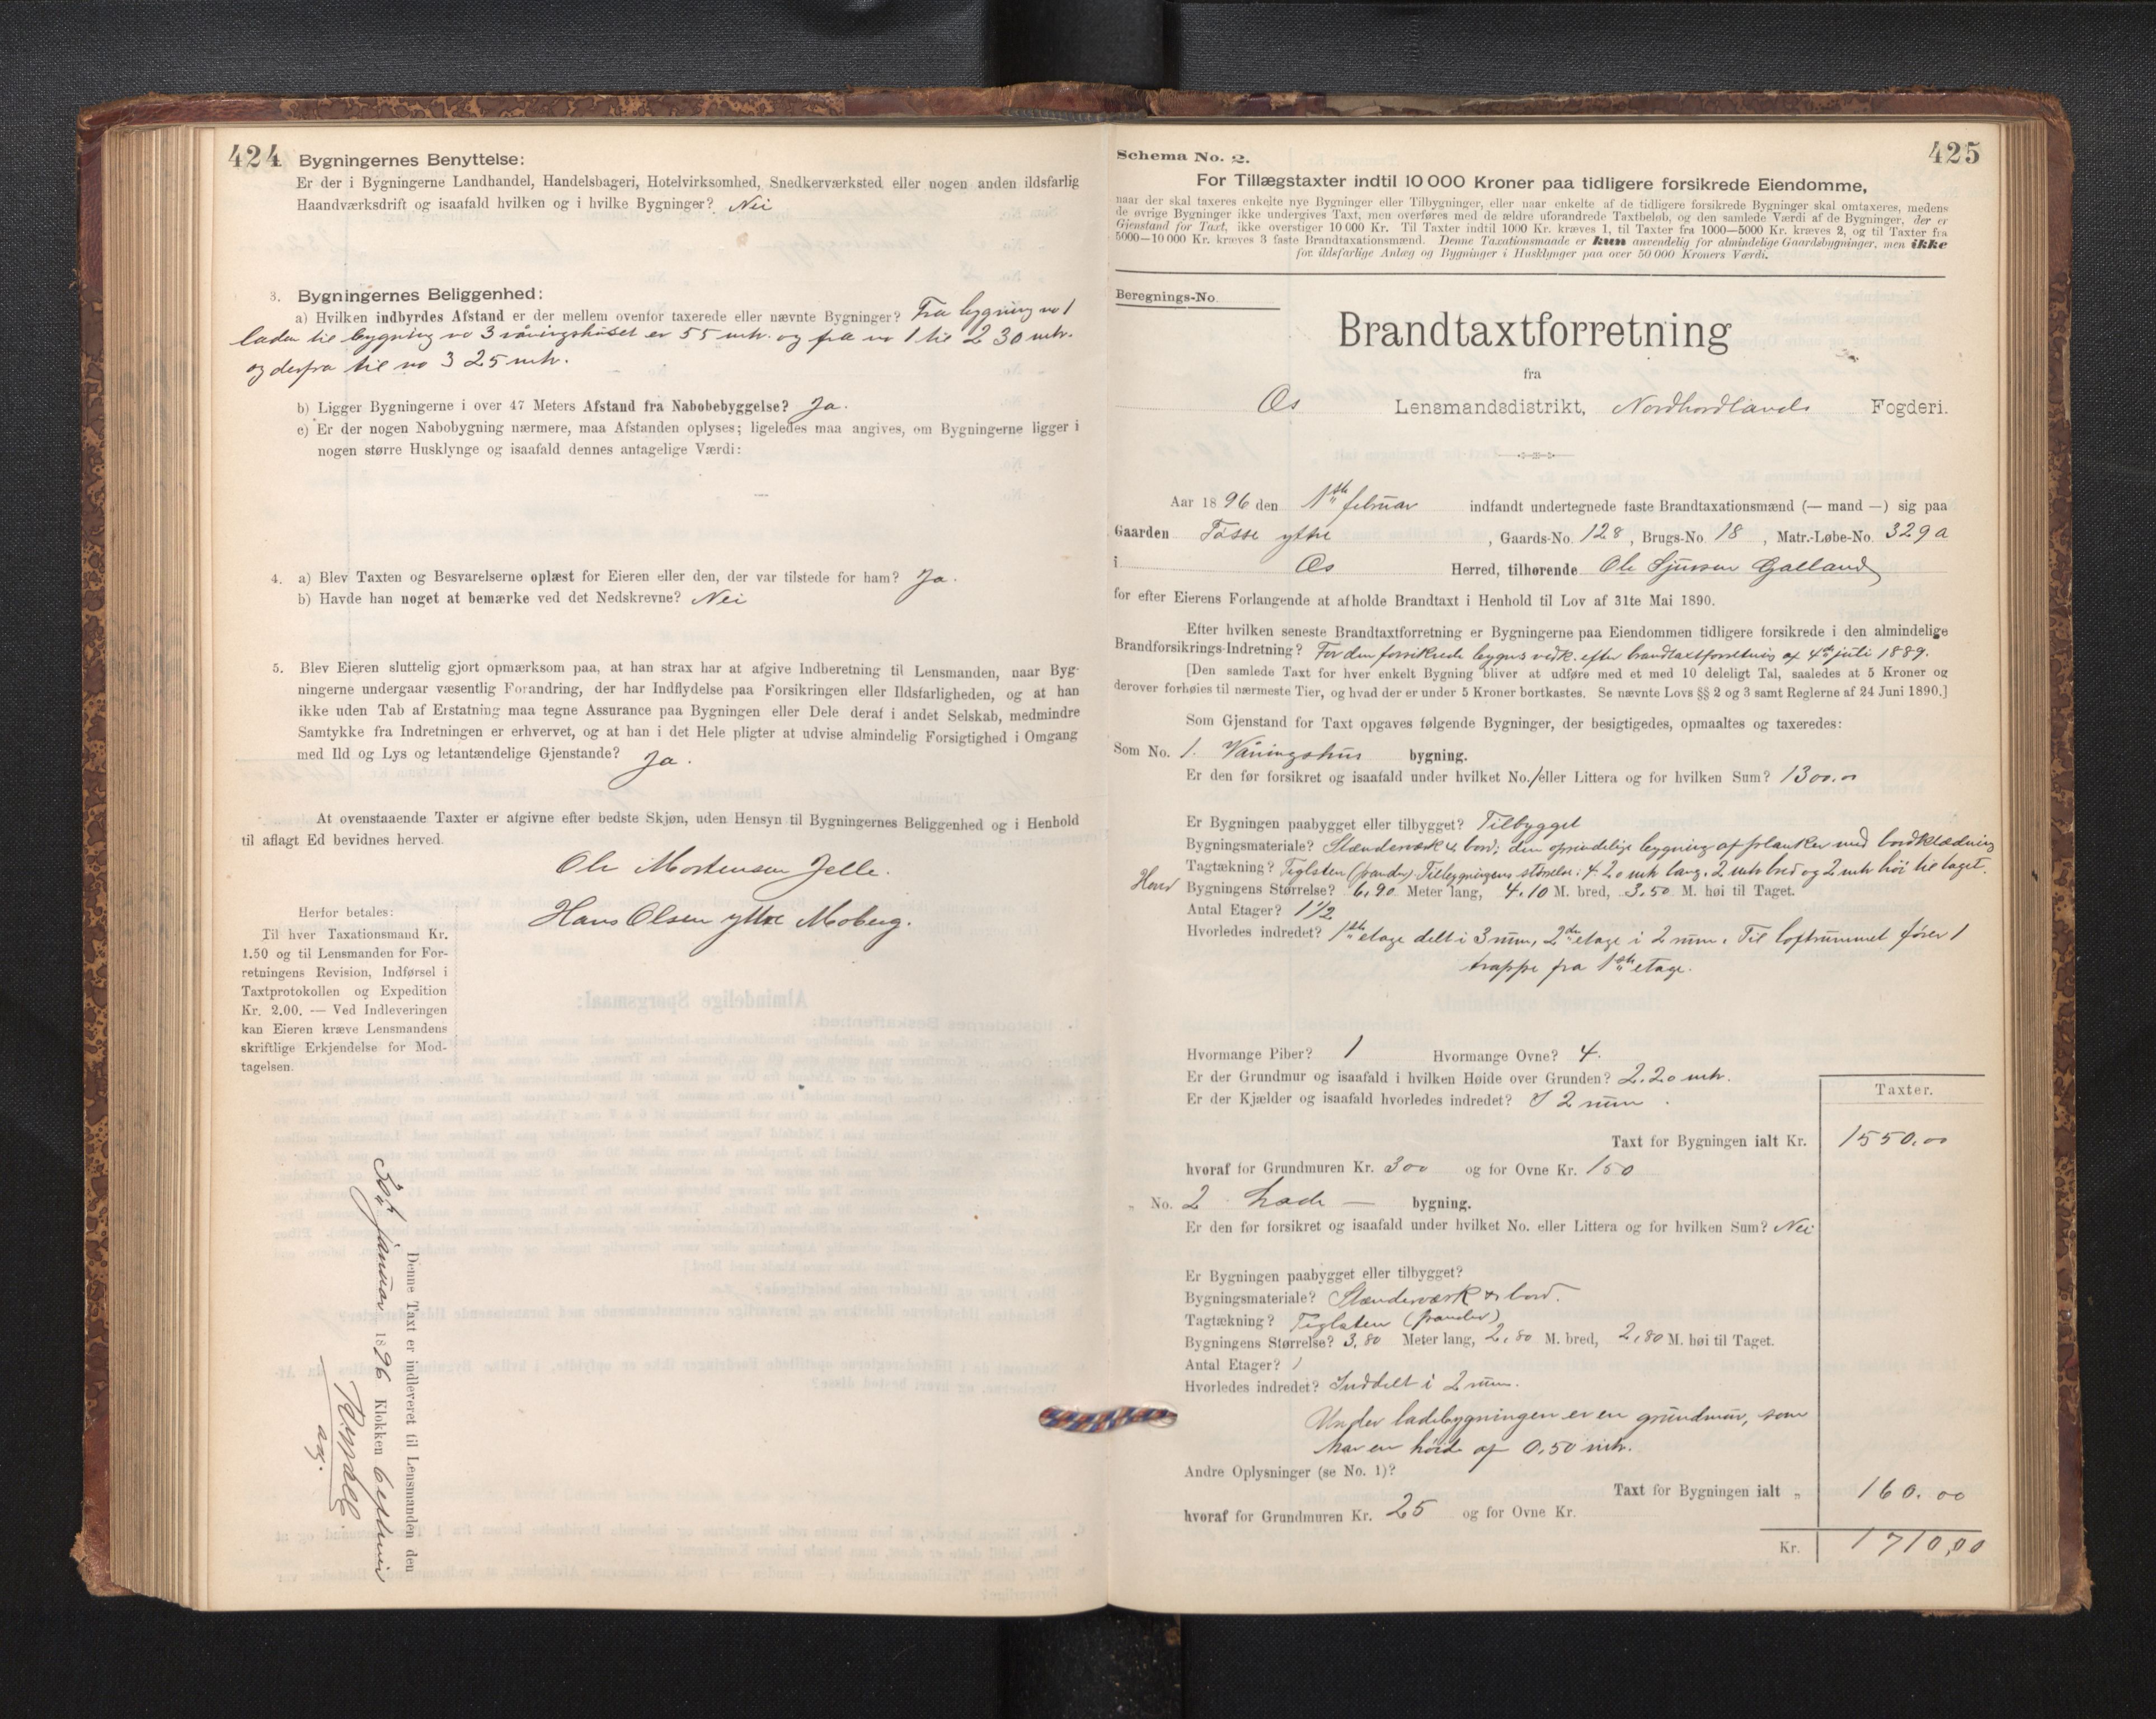 424
Bygningernes Benyttelse:
Er der i Bygningerne Landhandel, Handelsbageri, Hotelvirksomhed, Snedkerværksted eller nogen anden ildsfarlig
Haandværksdrift og isaafald hvilken og i hvilke Bygninger? Nei
3. Bygningernes Beliggenhed:
a) Hvilken indbyrdes Afstand er der mellem ovenfor taxerede eller nævnte Bygninger? Fra bygning no 1
laden til bygning no 3 våningshuset er 55 mtr. og fra no 1 til 2 30 mtr.
og derfra til no 3 25 mtr.
b) Ligger Bygningerne i over 47 Meters Afstand fra Nabobebyggelse? Ja.
c) Er der nogen Nabobygning nærmere, maa Afstanden oplyses; ligeledes maa angives, om Bygningerne ligger i
nogen større Husklynge og isaafald dennes antagelige Værdi:
4. a) Blev Taxten og Besvarelserne oplæst for Eieren eller den, der var tilstede for ham? Ja.
b) Havde han noget at bemærke ved det Nedskrevne? Nei
5. Blev Eieren sluttelig gjort opmærksom paa, at han strax har at afgive Indberetning til Lensmanden, naar Byg-
ningerne undergaar væsentlig Forandring, der har Indflydelse paa Forsikringen eller Ildsfarligheden, og at han
ikke uden Tab af Erstatning maa tegne Assurance paa Bygningen eller Dele deraf i andet Selskab, medmindre
Samtykke fra Indretningen er erhvervet, og at han i det Hele pligter at udvise almindelig Forsigtighed i Omgang
med Ild og Lys og letantændelige Gjenstande? Ja.
At ovenstaaende Taxter er afgivne efter bedste Skjøn, uden Hensyn til Bygningernes Beliggenhed og i Henhold
til aflagt Ed bevidnes herved.
Ole Mortensen Jelle.
Hans Olsen ytre Moberg.
Herfor betales:
Til hver Taxationsmand Kr.
1.50 og til Lensmanden for For-
retningens Revision, Indførsel i
Taxtprotokollen og Expedition
Kr. 2.00. — Ved Indleveringen
kan Eieren kræve Lensmandens
skriftlige Erkjendelse for Mod-
tagelsen.
Denne Taxt er indleveret til Lensmanden den
januar 1896 Klokken 6
425
Schema No. 2.
For Tillægstaxter indtil 10 000 Kroner paa tidligere forsikrede Eiendomme,
naar der skal taxeres enkelte nye Bygninger eller Tilbygninger, eller naar enkelte af de tidligere forsikrede Bygninger skal omtaxeres, medens
de øvrige Bygninger ikke undergives Taxt, men overføres med de ældre uforandrede Taxtbeløb, og den samlede Værdi af de Bygninger, der er
Gjenstand for Taxt, ikke overstiger 10 000 Kr. Til Taxter indtil 1000 Kr. kræves 1, til Taxter fra 1000—5000 Kr. kræves 2, og til Taxter fra
5000—10 000 Kr. kræves 3 faste Brandtaxationsmænd. Denne Taxationsmaade er kun anvendelig for almindelige Gaardsbygninger, men ikke
for ildsfarlige Anlæg og Bygninger i Husklynger paa over 50 000 Kroners Værdi.
Beregnings-No.
Brandtaxtforretning
fra
Os Lensmandsdistrikt, Nordhordlands Fogderi.
Aar 1896 den 1ste februar indfandt undertegnede faste Brandtaxationsmænd (— mand —) sig paa
Gaarden Tøsse ytre, Gaards-No. 128, Brugs-No. 18, Matr.-Løbe-No. 329a
i Os Herred, tilhørende Ole Sjursen Galland
for efter Eierens Forlangende at afholde Brandtaxt i Henhold til Lov af 31te Mai 1890.
Efter hvilken seneste Brandtaxtforretning er Bygningerne paa Eiendommen tidligere forsikrede i den almindelige
Brandforsikrings-Indretning? For den forsikrede bygns vedk. efter brandtaxtforretning af 4de juli 1889.
[Den samlede Taxt for hver enkelt Bygning bliver at udføre med et med 10 deleligt Tal, saaledes at 5 Kroner og
derover forhøies til nærmeste Tier, og hvad der er under 5 Kroner bortkastes. Se nævnte Lovs §§ 2 og 3 samt Reglerne af 24 Juni 1890.]
Som Gjenstand for Taxt opgaves følgende Bygninger, der besigtigedes, opmaaltes og taxeredes:
Som No. 1. Våningshus bygning.
Er den før forsikret og isaafald under hvilket No./eller Littera og for hvilken Sum? 1300.00
Er Bygningen paabygget eller tilbygget? Tilbygget
Bygningsmateriale? Stænderværk & bord; den oprindelige bygning af planker med bordklædning
Tagtækning? Teglsten (pander) Tilbygningens størrelse: 4.20 mtr lang, 2 mtr bred og 2 mtr høi til taget.
Hoved Bygningens Størrelse? 6,90 Meter lang, 4.10 M. bred, 3,50 M. høi til Taget.
Antal Etager? 1½
Hvorledes indredet? 1ste etage delt i 3 rum, 2den etage i 2 rum. Til loftrummet fører 1
trappe fra 1ste etage.
Hvormange Piber? 1 Hvormange Ovne? 4.
Er der Grundmur og isaafald i hvilken Høide over Grunden? 2.20 mtr.
Er der Kjælder og isaafald hvorledes indredet? I 2 rum.
Taxter.
Taxt for Bygningen ialt Kr. 1550.00
hvoraf for Grundmuren Kr. 300 og for Ovne Kr. 150
„ No. 2 Lade — bygning.
Er den før forsikret og isaafald under hvilket No. eller Littera og for hvilken Sum? Nei
Er Bygningen paabygget eller tilbygget?
Bygningsmateriale? Stænderværk & bord.
Tagtækning? Teglsten (pander)
Bygningens Størrelse? 3,80 Meter lang, 2,80 M. bred, 2,80 M. høi til Taget.
Antal Etager? 1
Hvorledes indredet? Inddelt i 2 rum.
Under ladebygningen er en grundmur, som
har en høide af 0.50 mtr.
Andre Oplysninger (se No. 1)?
Taxt for Bygningen ialt „ 160.00
hvoraf for Grundmuren Kr. 25 og for Ovne Kr.
Kr. 1710,00